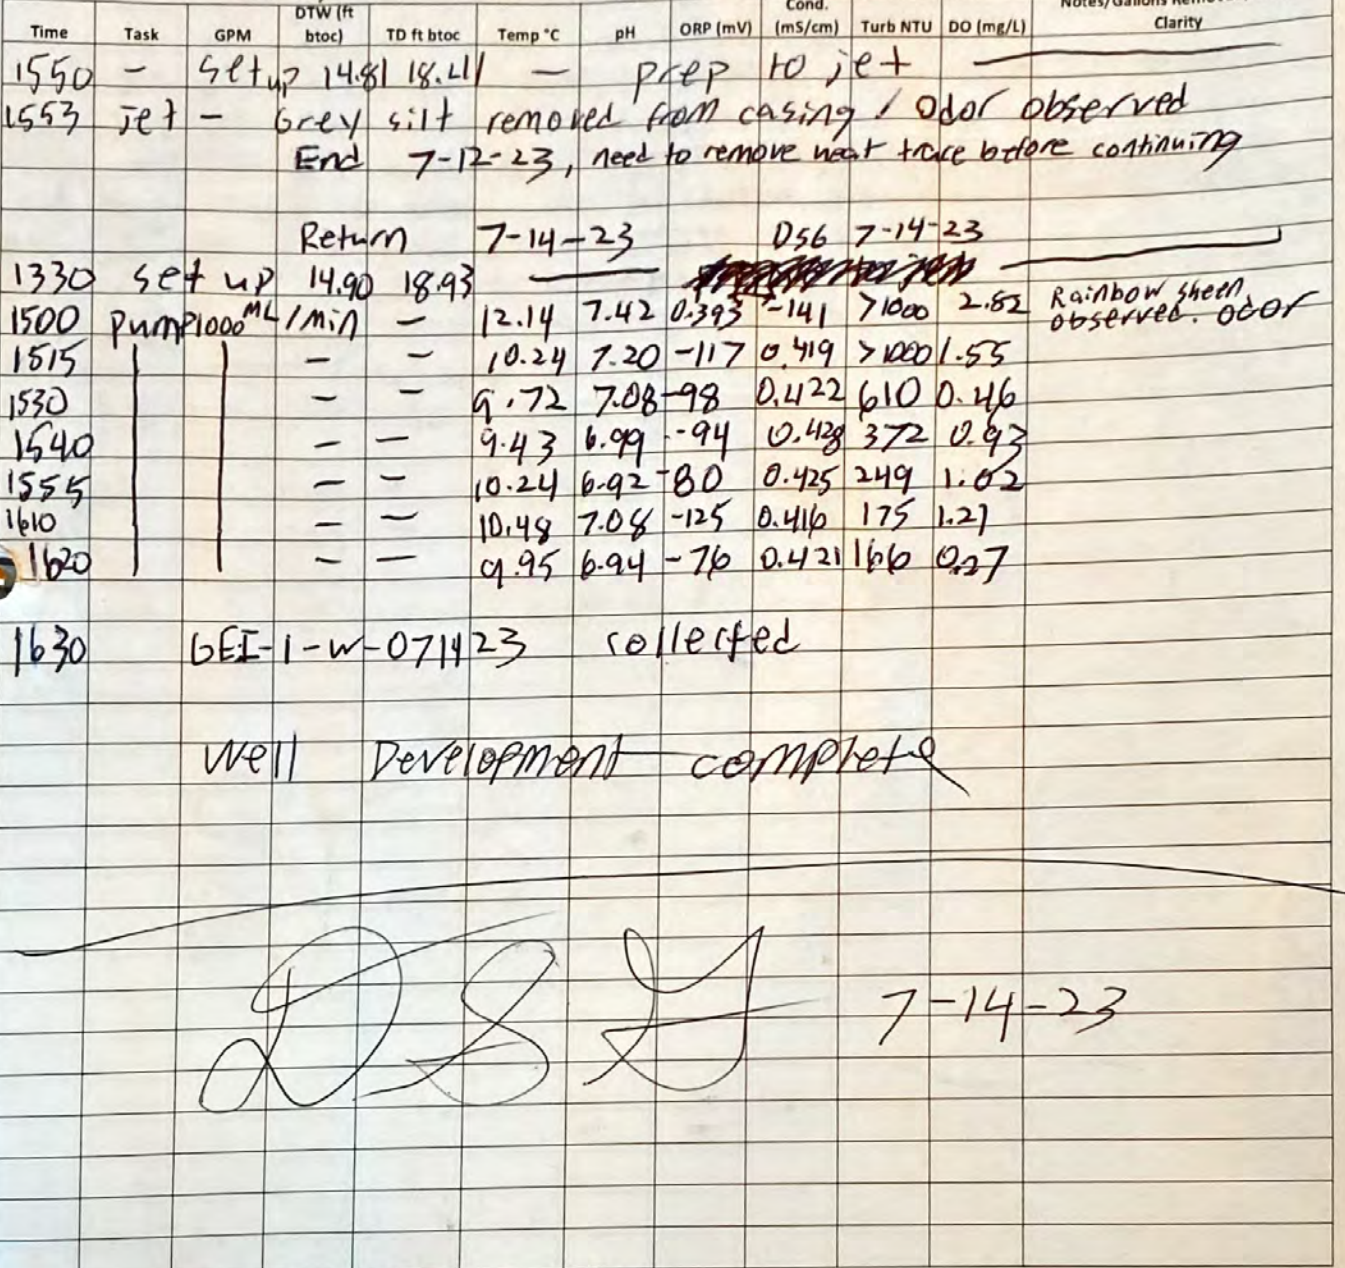 Time Task GPM DTW (ft btoc) TD ft btoc Temp °C pH ORP (mV) Cond. (mS/cm) Turb NTU DO (mg/L) Clarity
1550 - Set up 14.81 18.41 — prep to jet
1553 jet - Grey silt removed from casing / Odor observed
End 7-12-23, need to remove heat trace before continuing
Return 7-14-23 DSG 7-14-23
1330 set up 14.90 18.93 —
1500 pump 1000 mL/min - 12.14 7.42 0.393 -141 >1000 2.82 Rainbow sheen observed. odor
1515 - - 10.24 7.20 -117 0.419 >1000 1.55
1530 - - 9.72 7.08 -98 0.422 610 0.46
1540 - - 9.43 6.99 -94 0.428 372 0.93
1555 - - 10.24 6.92 -80 0.425 249 1.02
1610 - - 10.48 7.08 -125 0.416 175 1.27
1620 - - 9.95 6.94 -76 0.421 166 0.27
1630 GEI-1-W-071423 collected
Well Development complete
DSG 7-14-23